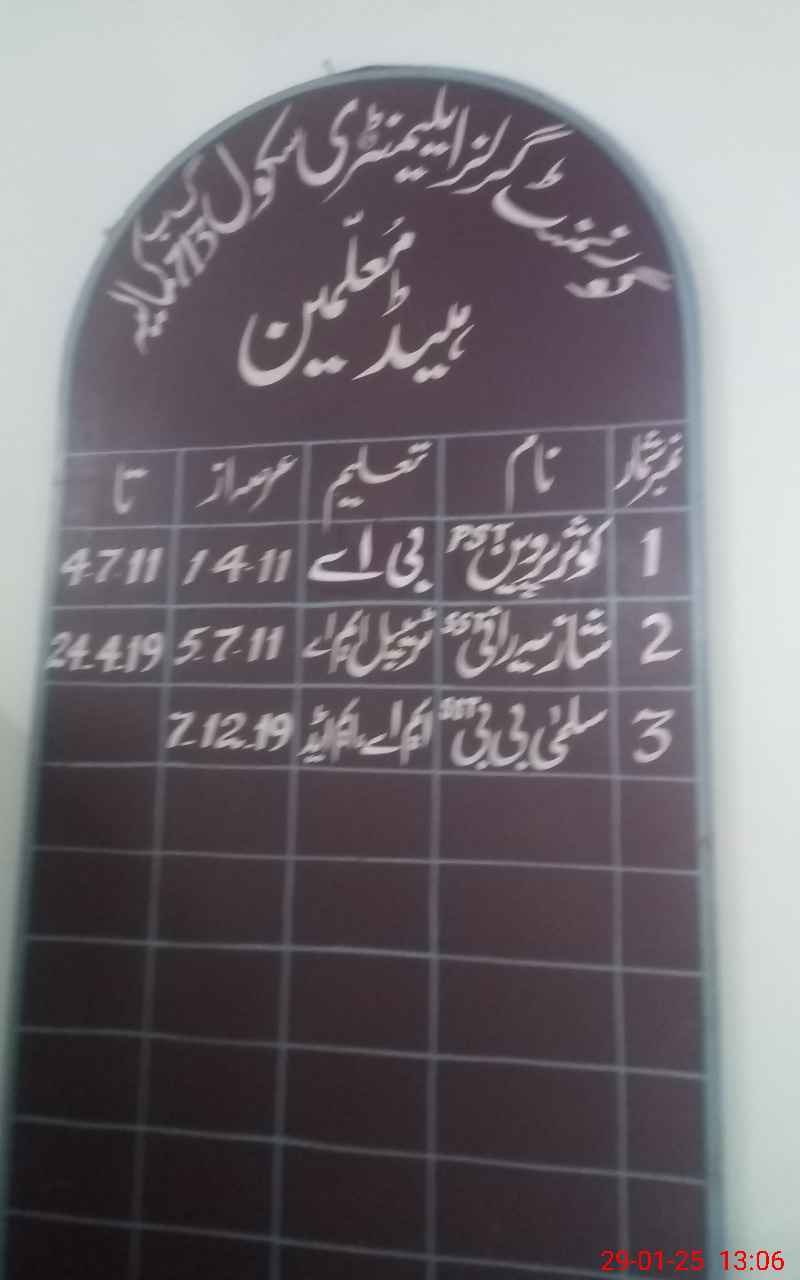 گورنمنٹ گرلز ایلیمنٹری سکول گ ب 713 کمالیہ
ہیڈ معلّمین
نمبر شمار نام تعلیم عرصہ از تا
1 کوثر پروین PST بی اے 1 4 11 4.7.11
2 شازیہ رانی SST ایم اے 5.7.11 24.4.19
3 سلمیٰ بی بی SST ایم اے، ایم ایڈ 7.12.19
29-01-25 13:06